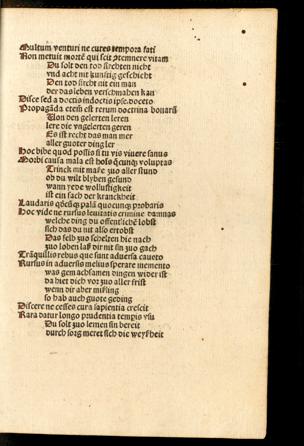 Multum venturi ne cures tempora fati
Non metuit mortē qui scit ptemnere vitam
Du solt den tod fürchten nicht
vnd acht nit kunftig geschicht
Den tod fürcht nit ein man
der das leben verschmahen kan
Disce sed a doctis indoctis ipse doceto
Propagāda etem est rerum doctrina bonarū
Uon den gelerten leren
lere die vngelerten geren
Es ist recht das man mer
aller guoter ding ler
Hoc bibe quod possis si tu vis viuere sanus
Morbi causa mala est hoīs q̄cunq voluptas
Trinck mit maße zuo aller stund
ob du wilt blyben gesund
wann yede wollustigkeit
ist ein sach der kranckheit
Laudaris q̄dcūq palā quocunq probaris
Hoc vide ne rursus leuitatis crimine damnas
welche ding du offentlichē lobst
sich das du nit also ertobst
Das selb zuo schelten hie nach
zuo loben laß dir nit sin zuo gach
Trāquillis rebus que sunt aduersa caueto
Rursus in aduersis melius sperare memento
was gemachsamen dingen wider ist
da hiet dich vor zuo aller frist
wenn dir aber mißling
so hab auch guote geding
Discere ne cesses cura sapientia crescit
Rara datur longo prudentia tempis vsu
Du solt zuo lernen sin bereit
durch sorg meret sich die weyßheit